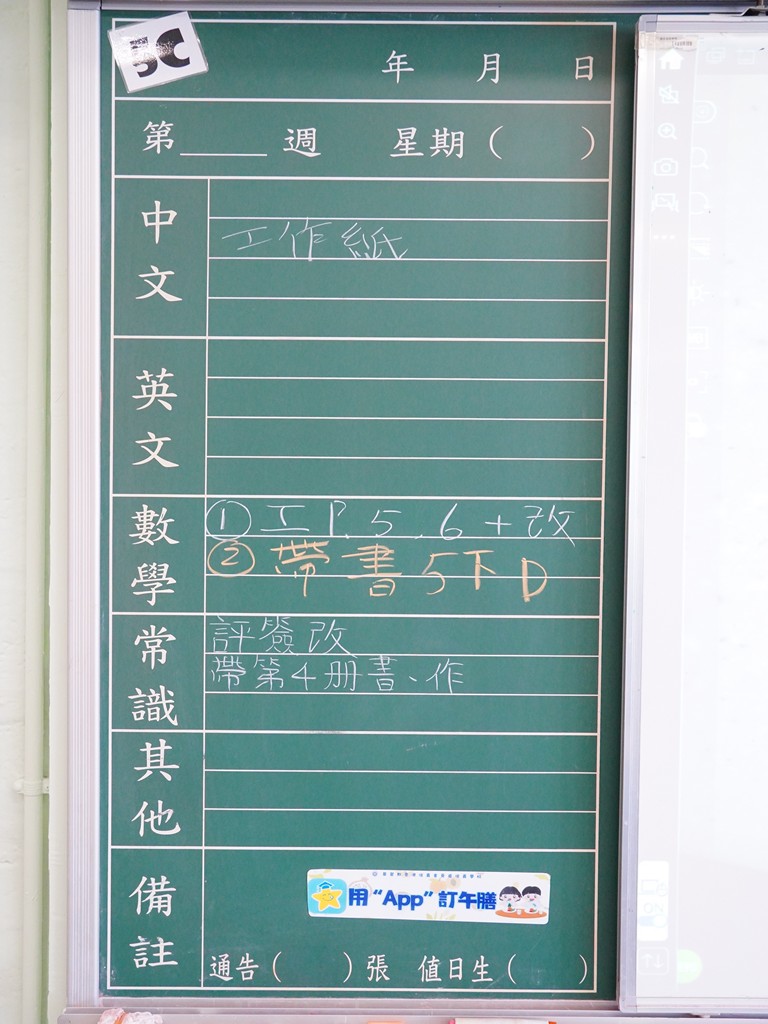 5C
年 月 日
第____週 星期( )
中文
工作紙
英文
數學
① 工 P.5.6+改
② 帶書5下D
常識
評簽改
帶第4册書、作
其他
備註
用“App”訂午膳
通告( )張 值日生( )